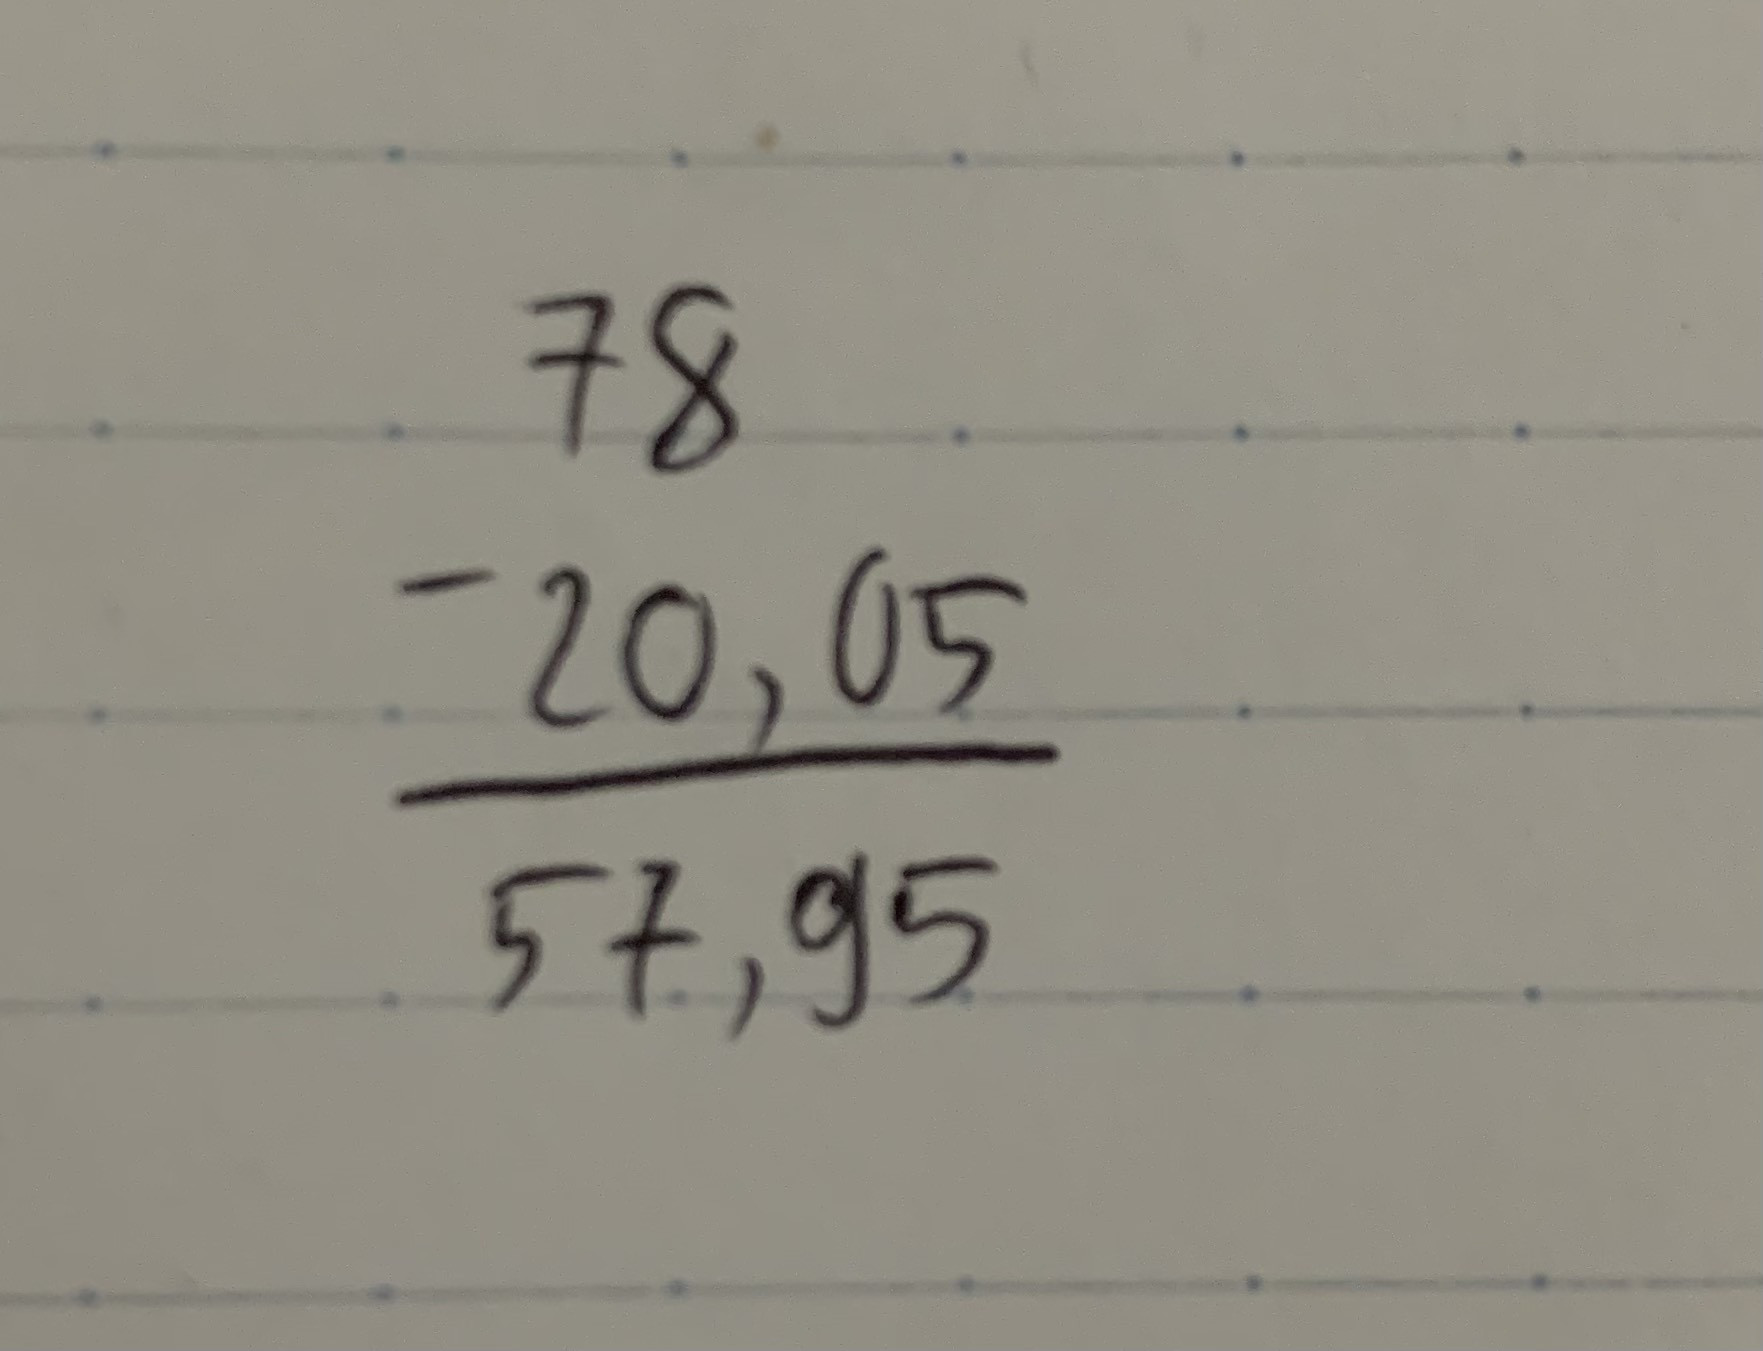 78
-20,05
57,95